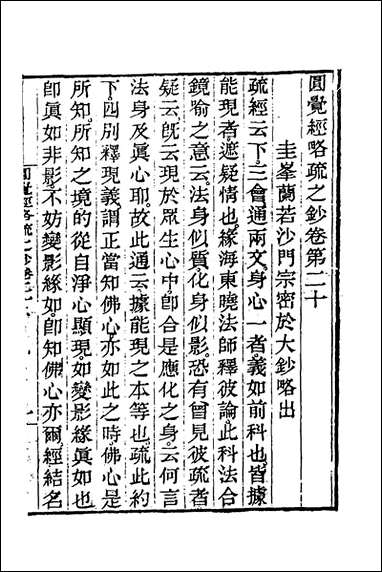 圓覺經略疏之鈔卷第二十
圭峯蘭若沙門宗密於大鈔略出
疏經云下三會通兩文身心一者義如前科也皆據
能現者遮疑情也緣海東曉法師釋彼論此科法合
鏡喻之意云法身似質化身似影恐有曾見彼疏者
疑云旣云現於眾生心中卽合是應化之身云何言
法身及眞心耶故此通云據能現之本等也疏此約
下四別釋現義謂正當知佛心亦如此之時佛心是
所知所知之境的從自淨心顯現如變影緣眞如也
卽眞如非影不妨變影緣如卽知佛心亦爾經結名
圓覺經略疏之鈔卷二十